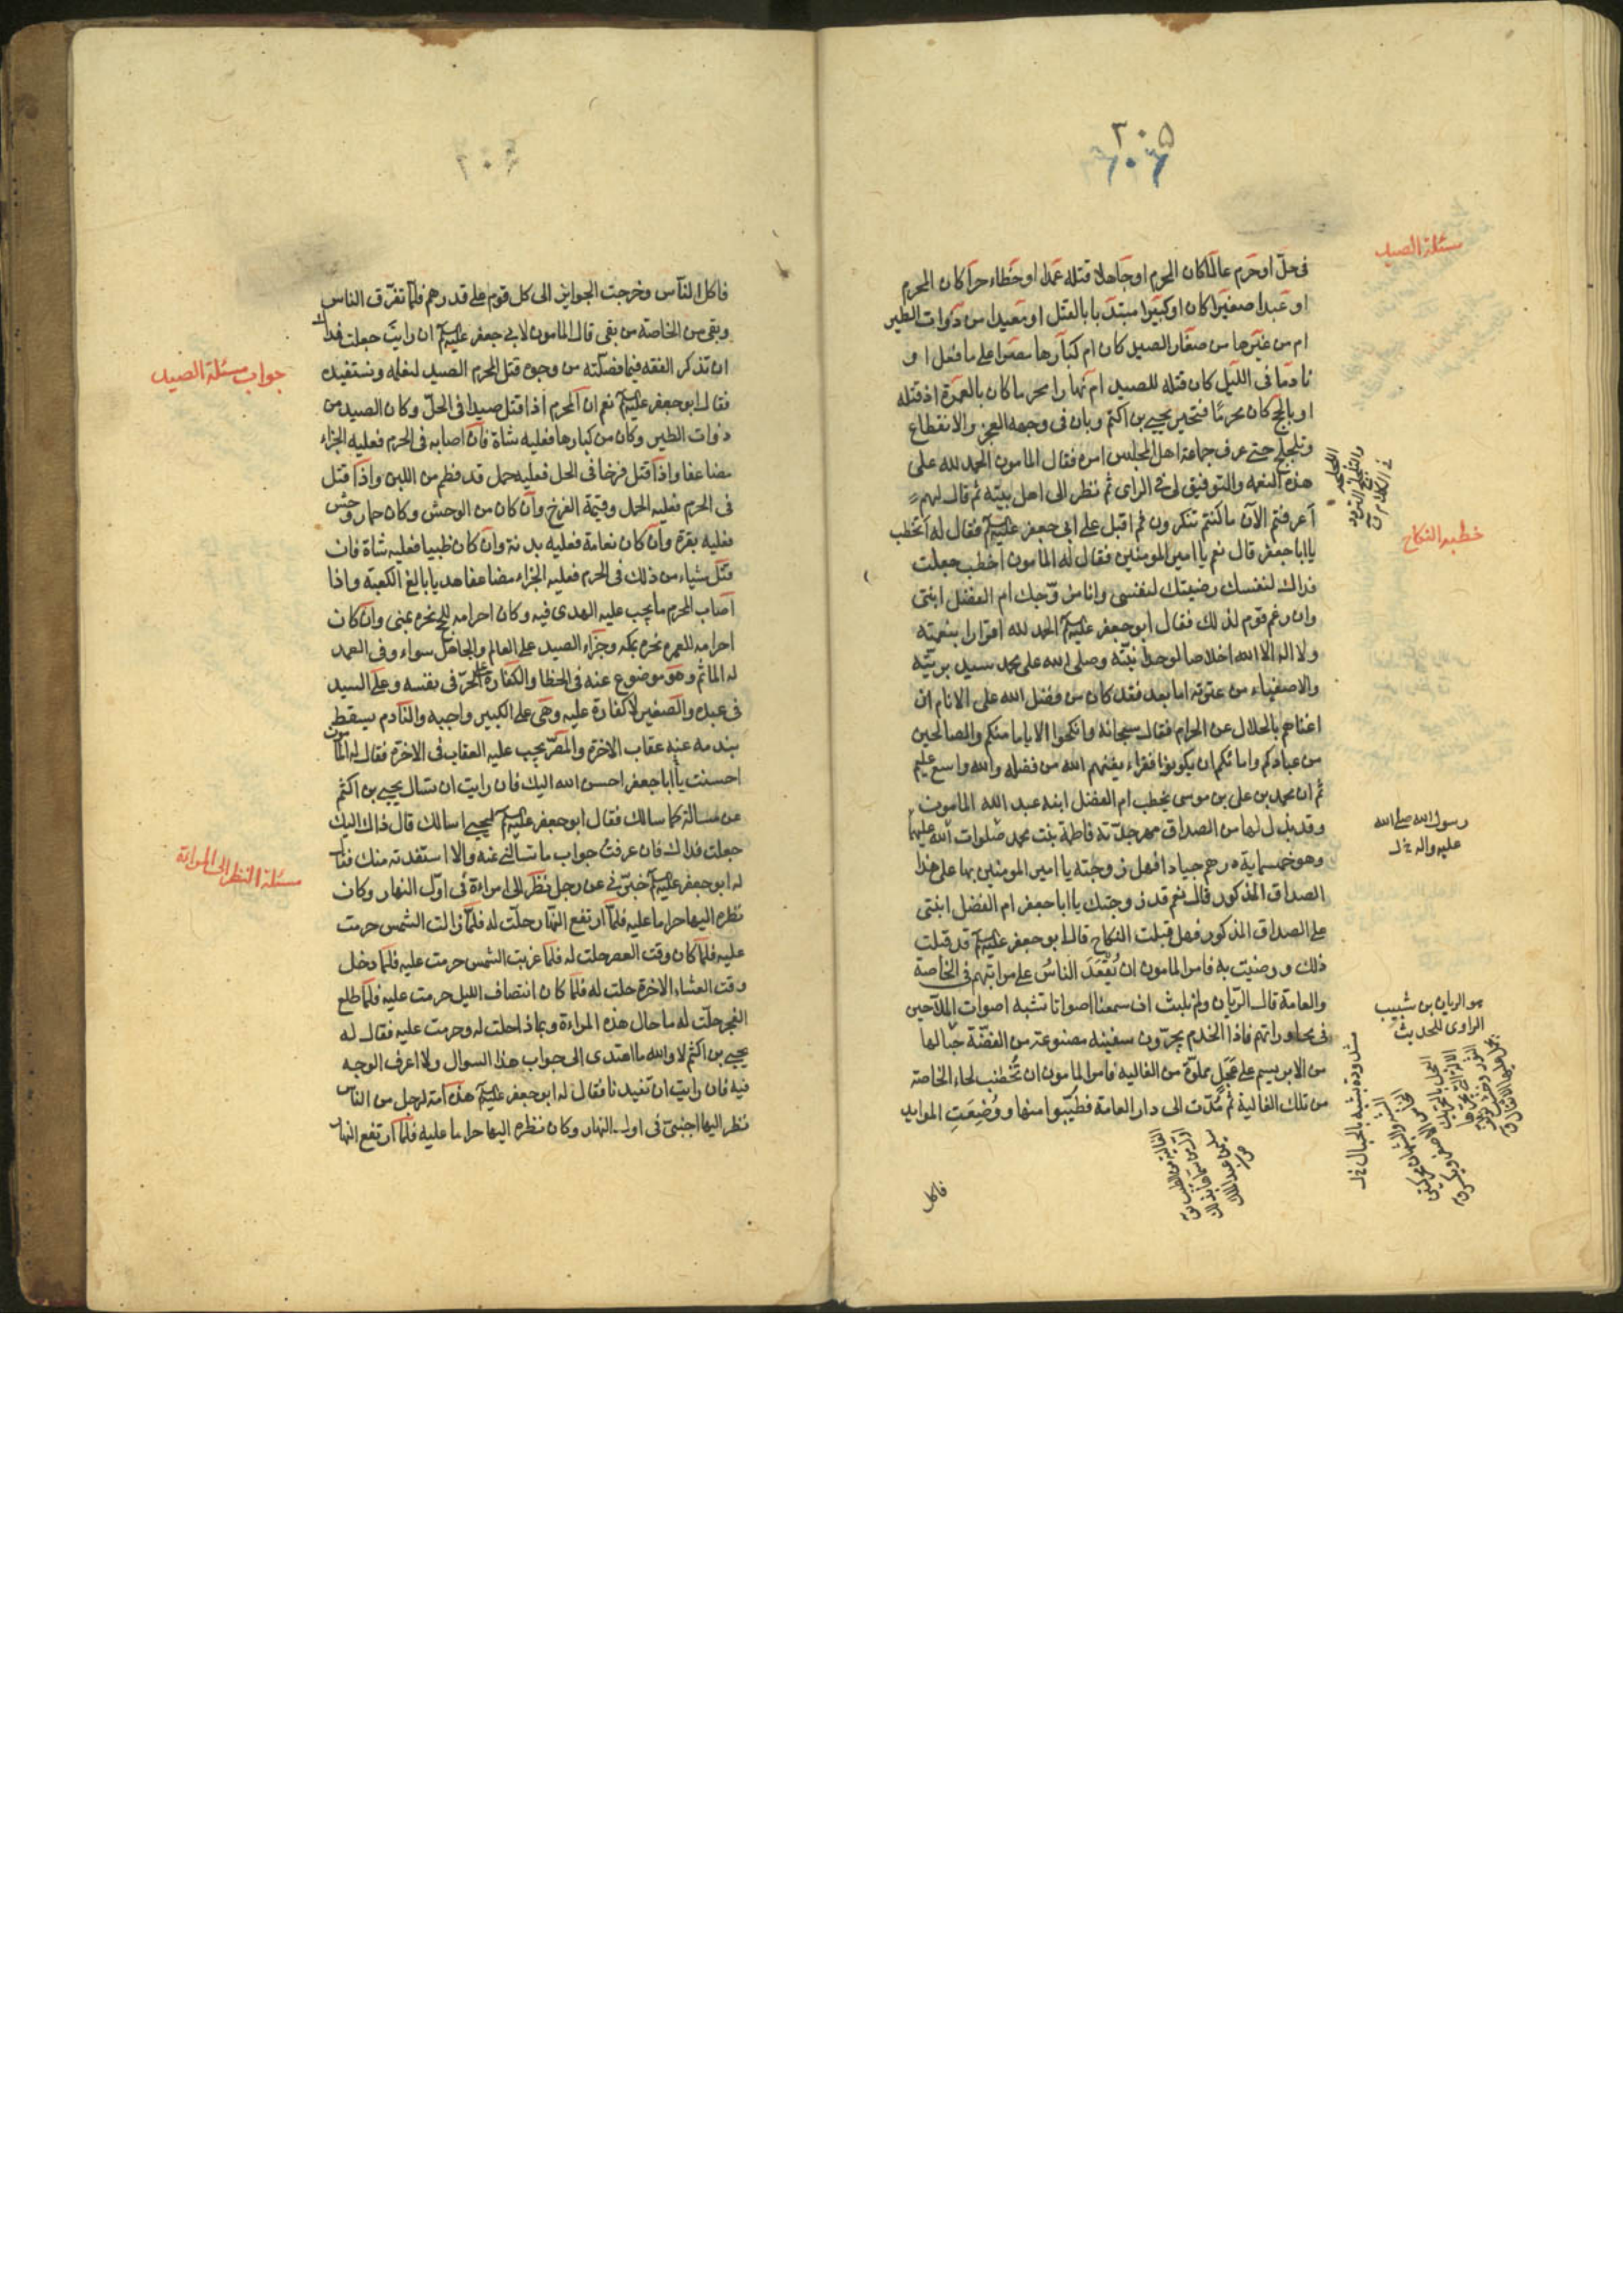 ٢٠۵
٢٠٦
مسئلة الصيد
فى حلّ او حرم عالما كان المحرم او جاهلا قتله عمدا او خطاء حرا كان المحرم
او عبدا صغيرا كان او كبيرا مبتديا بالقتل او معيدا من ذوات الطير
ام من غيرها من صغار الصيد كان ام كبارها مصرا على ما فعل او
نادما فى الليل كان قتله للصيد ام نهارا محرما كان بالعمرة اذ قتله
او بالحج كان محرما فتحير يحيى بن اكثم وبان فى وجهه العجز والانقطاع
وتلجلج حتى عرف جماعة اهل المجلس امره فقال المامون الحمد لله على
هذه النعمه والتوفيق لى فى الراى ثم نظر الى اهل بيته ثم قال لهم
أعرفتم الآن ما كنتم تنكرون ثم اقبل على ابى جعفر عليه السلم فقال له أتخطب
خطبه النكاح
يا ابا جعفر قال نعم يا امير المومنين فقال له المامون اخطب جعلت
فداك لنفسك رضيتك لنفسى وانا مزوّجك ام الفضل ابنتى
وان رغم قوم لذلك فقال ابو جعفر عليه السلم الحمد لله اقرارا بنعمته
ولا اله الا الله اخلاصا لوحدانيّته وصلى الله على محمد سيد بريّته
والاصفياء من عترته اما بعد فقد كان من فضل الله على الانام ان
اغناهم بالحلال عن الحرام فقال سبحانه وانكحوا الايامى منكم والصالحين
من عبادكم وامائكم ان يكونوا فقراء يغنهم الله من فضله والله واسع عليم
ثم ان محمد بن على بن موسى يخطب ام الفضل ابنه عبد الله المامون
وقد بذل لها من الصداق مهر جدّته فاطمة بنت محمد صلوات الله عليهما
رسول الله صلى الله
عليه واله خ ل
وهو خمسماية درهم جيادا فهل زوجته يا امير المومنين بها على هذا
الصداق المذكور قال نعم قد زوجتك يا ابا جعفر ام الفضل ابنتى
على الصداق المذكور فهل قبلت النكاح قال ابو جعفر عليه السلم قد قبلت
ذلك ورضيت به فامر المامون ان يُقعَدَ الناسُ على مراتبهم فى الخاصة
والعامة قال الريان ولم نلبث ان سمعنا اصواتا تشبه اصوات الملاحين
هو الريان بن شبيب
الراوى للحديث
فى محاوراتهم فاذا الخدم يجرّون سفينه مصنوعة من الفضّة حبالها
من الابريسم على عَجَلٍ مملوّة من الغاليه فامر المامون ان تُخضَب لحاء الخاصة
من تلك الغالية ثم مُدّت الى دار العامة فطُيّبوا منها ووُضِعَتِ الموايد
فاكل
فاكل الناس وخرجت الجوايز الى كل قوم على قدرهم فلمّا تفرّق الناس
وبقى من الخاصة من بقى قال المامون لابى جعفر عليه السلم ان رايت جعلت فداك
ان تذكر الفقه فيما فصّلته من وجوه قتل المحرم الصيد لنعلمه ونستفيده
جواب مسئلة الصيد
فقال ابو جعفر عليه السلم نعم ان المحرم اذا قتل صيدا فى الحلّ وكان الصيد من
ذوات الطير وكان من كبارها فعليه شاة فان اصابه فى الحرم فعليه الجزاء
مضاعفا واذا قتل فرخا فى الحل فعليه حمل قد فطم من اللبن واذا قتل
فى الحرم فعليه الحمل وقيمة الفرخ وان كان من الوحش وكان حمار وحش
فعليه بقرة وان كان نعامة فعليه بدنة وان كان ظبيا فعليه شاة فان
قتل شياء من ذلك فى الحرم فعليه الجزاء مضاعفا هديا بالغ الكعبة واذا
اصاب المحرم ما يجب عليه الهدى فيه وكان احرامه للحج نحره بمنى وان كان
احرامه للعمره نحره بمكه وجزاء الصيد على العالم والجاهل سواء وفى العمد
له الماثم وهو موضوع عنه فى الخطا والكفارة على الحرّ فى نفسه وعلى السيد
فى عبده والصغير لا كفارة عليه وهى على الكبير واجبه والنادم يسقط
بندمه عنه عقاب الاخرة والمصرّ يجب عليه العقاب فى الاخرة فقال له المامون
احسنت يا ابا جعفر احسن الله اليك فان رايت ان تسال يحيى بن اكثم
عن مسالة كما سالك فقال ابو جعفر عليه السلم ليحيى اسالك قال ذاك اليك
جعلت فداك فان عرفتُ جواب ما تسالنى عنه والا استفدته منك فقال
مسئلة النظر الى المراة
له ابو جعفر عليه السلم خبّرنى عن رجل نظر الى امراءة فى اوّل النهار وكان
نظره اليها حراما عليه فلمّا ارتفع النهار حلّت له فلمّا زالت الشمس حرمت
عليه فلما كان وقت العصر حلت له فلما غربت الشمس حرمت عليه فلما دخل
وقت العشاء الاخرة حلت له فلما كان انتصاف الليل حرمت عليه فلما طلع
الفجر حلّت له ما حال هذه المراءة وبماذا حلت له وحرمت عليه فقال له
يحيى بن اكثم لا والله ما اهتدى الى جواب هذا السوال ولا اعرف الوجه
فيه فان رايت ان تفيدنا فقال له ابو جعفر عليه السلم هذه امة لرجل من الناس
نظر اليها اجنبىّ فى اول النهار وكان نظره اليها حراما عليه فلمّا ارتفع النهار